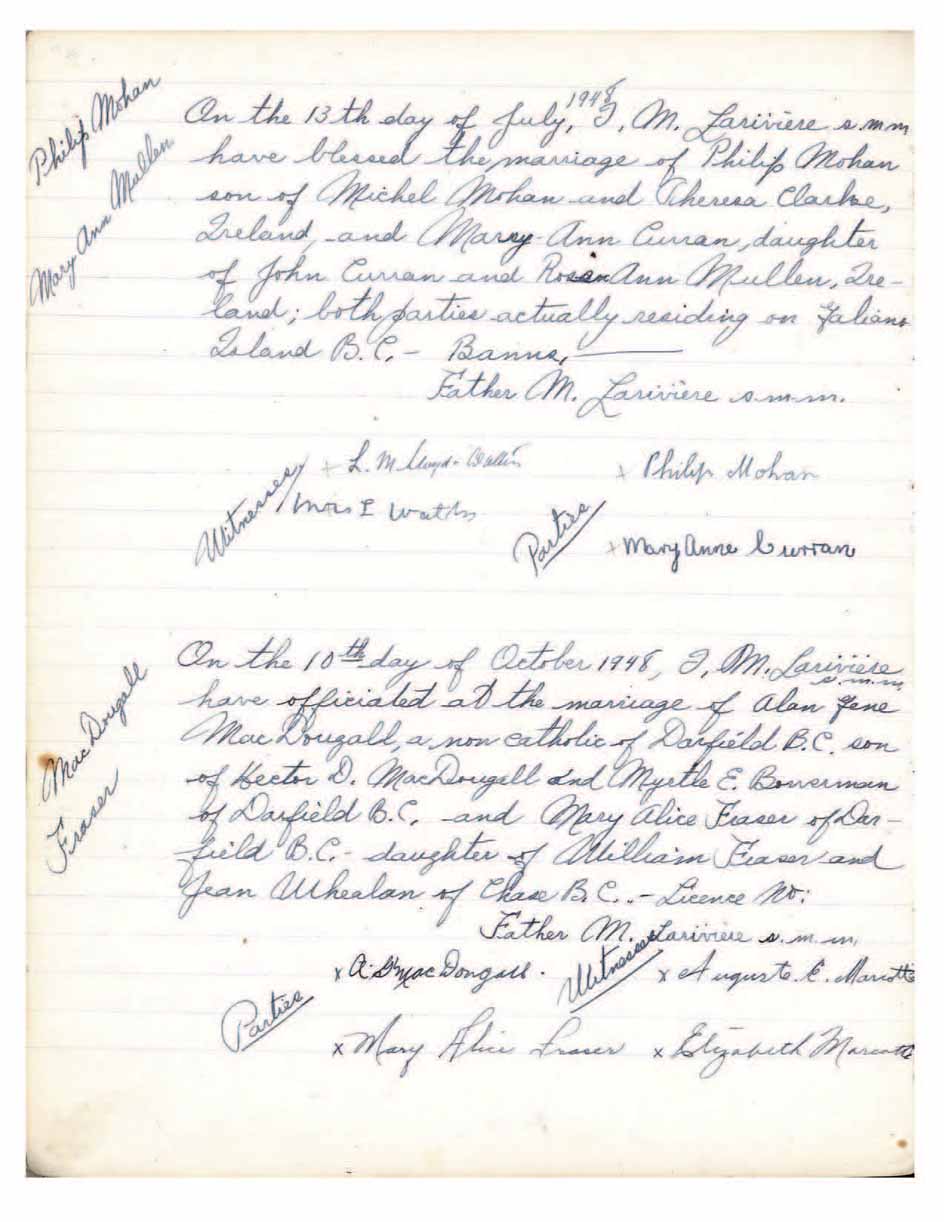 Philip Mohan
Mary Ann Mullen
1948
On the 13th day of July, I, M. Larivière s.m.m
have blessed the marriage of Philip Mohan
son of Michel Mohan and Theresa Clarke,
Ireland, and Mary Ann Curran, daughter
of John Curran and Rose Ann Mullen, Ire-
land; both parties actually residing on Galiano
Island B.C. - Banns,
Father M. Larivière s.m.m.
Witnesses
x L. M. Lloyd-
x Philip Mohan
Mrs E
Parties
x Mary Anne Curran
MacDougall
Fraser
On the 10th day of October 1948, I, M. Larivière
s.m.m.
have officiated at the marriage of Alan Gene
MacDougall, a non catholic of Darfield B.C. son
of Hector D. MacDougall and Myrtle E. Bowerman
of Darfield B.C. and Mary Alice Fraser of Dar-
field B.C. - daughter of William Fraser and
Jean Whealan of Chase B.C. - Licence No:
Father M. Larivière s.m.m.
x A. G. MacDougall. Witnesses x Auguste. E. Marcotte
Parties
x Mary Alice Fraser x Elizabeth Marcotte